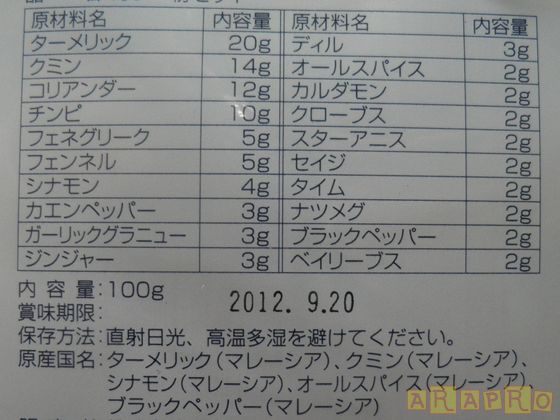 原材料名 内容量 原材料名 内容量
ターメリック 20g ディル 3g
クミン 14g オールスパイス 2g
コリアンダー 12g カルダモン 2g
チンピ 10g クローブス 2g
フェネグリーク 5g スターアニス 2g
フェンネル 5g セイジ 2g
シナモン 4g タイム 2g
カエンペッパー 3g ナツメグ 2g
ガーリックグラニュー 3g ブラックペッパー 2g
ジンジャー 3g ベイリーブス 2g
内容量:100g
賞味期限: 2012. 9.20
保存方法:直射日光、高温多湿を避けてください。
原産国名:ターメリック(マレーシア)、クミン(マレーシア)、
シナモン(マレーシア)、オールスパイス(マレーシア)、
ブラックペッパー(マレーシア)
ARAPRO